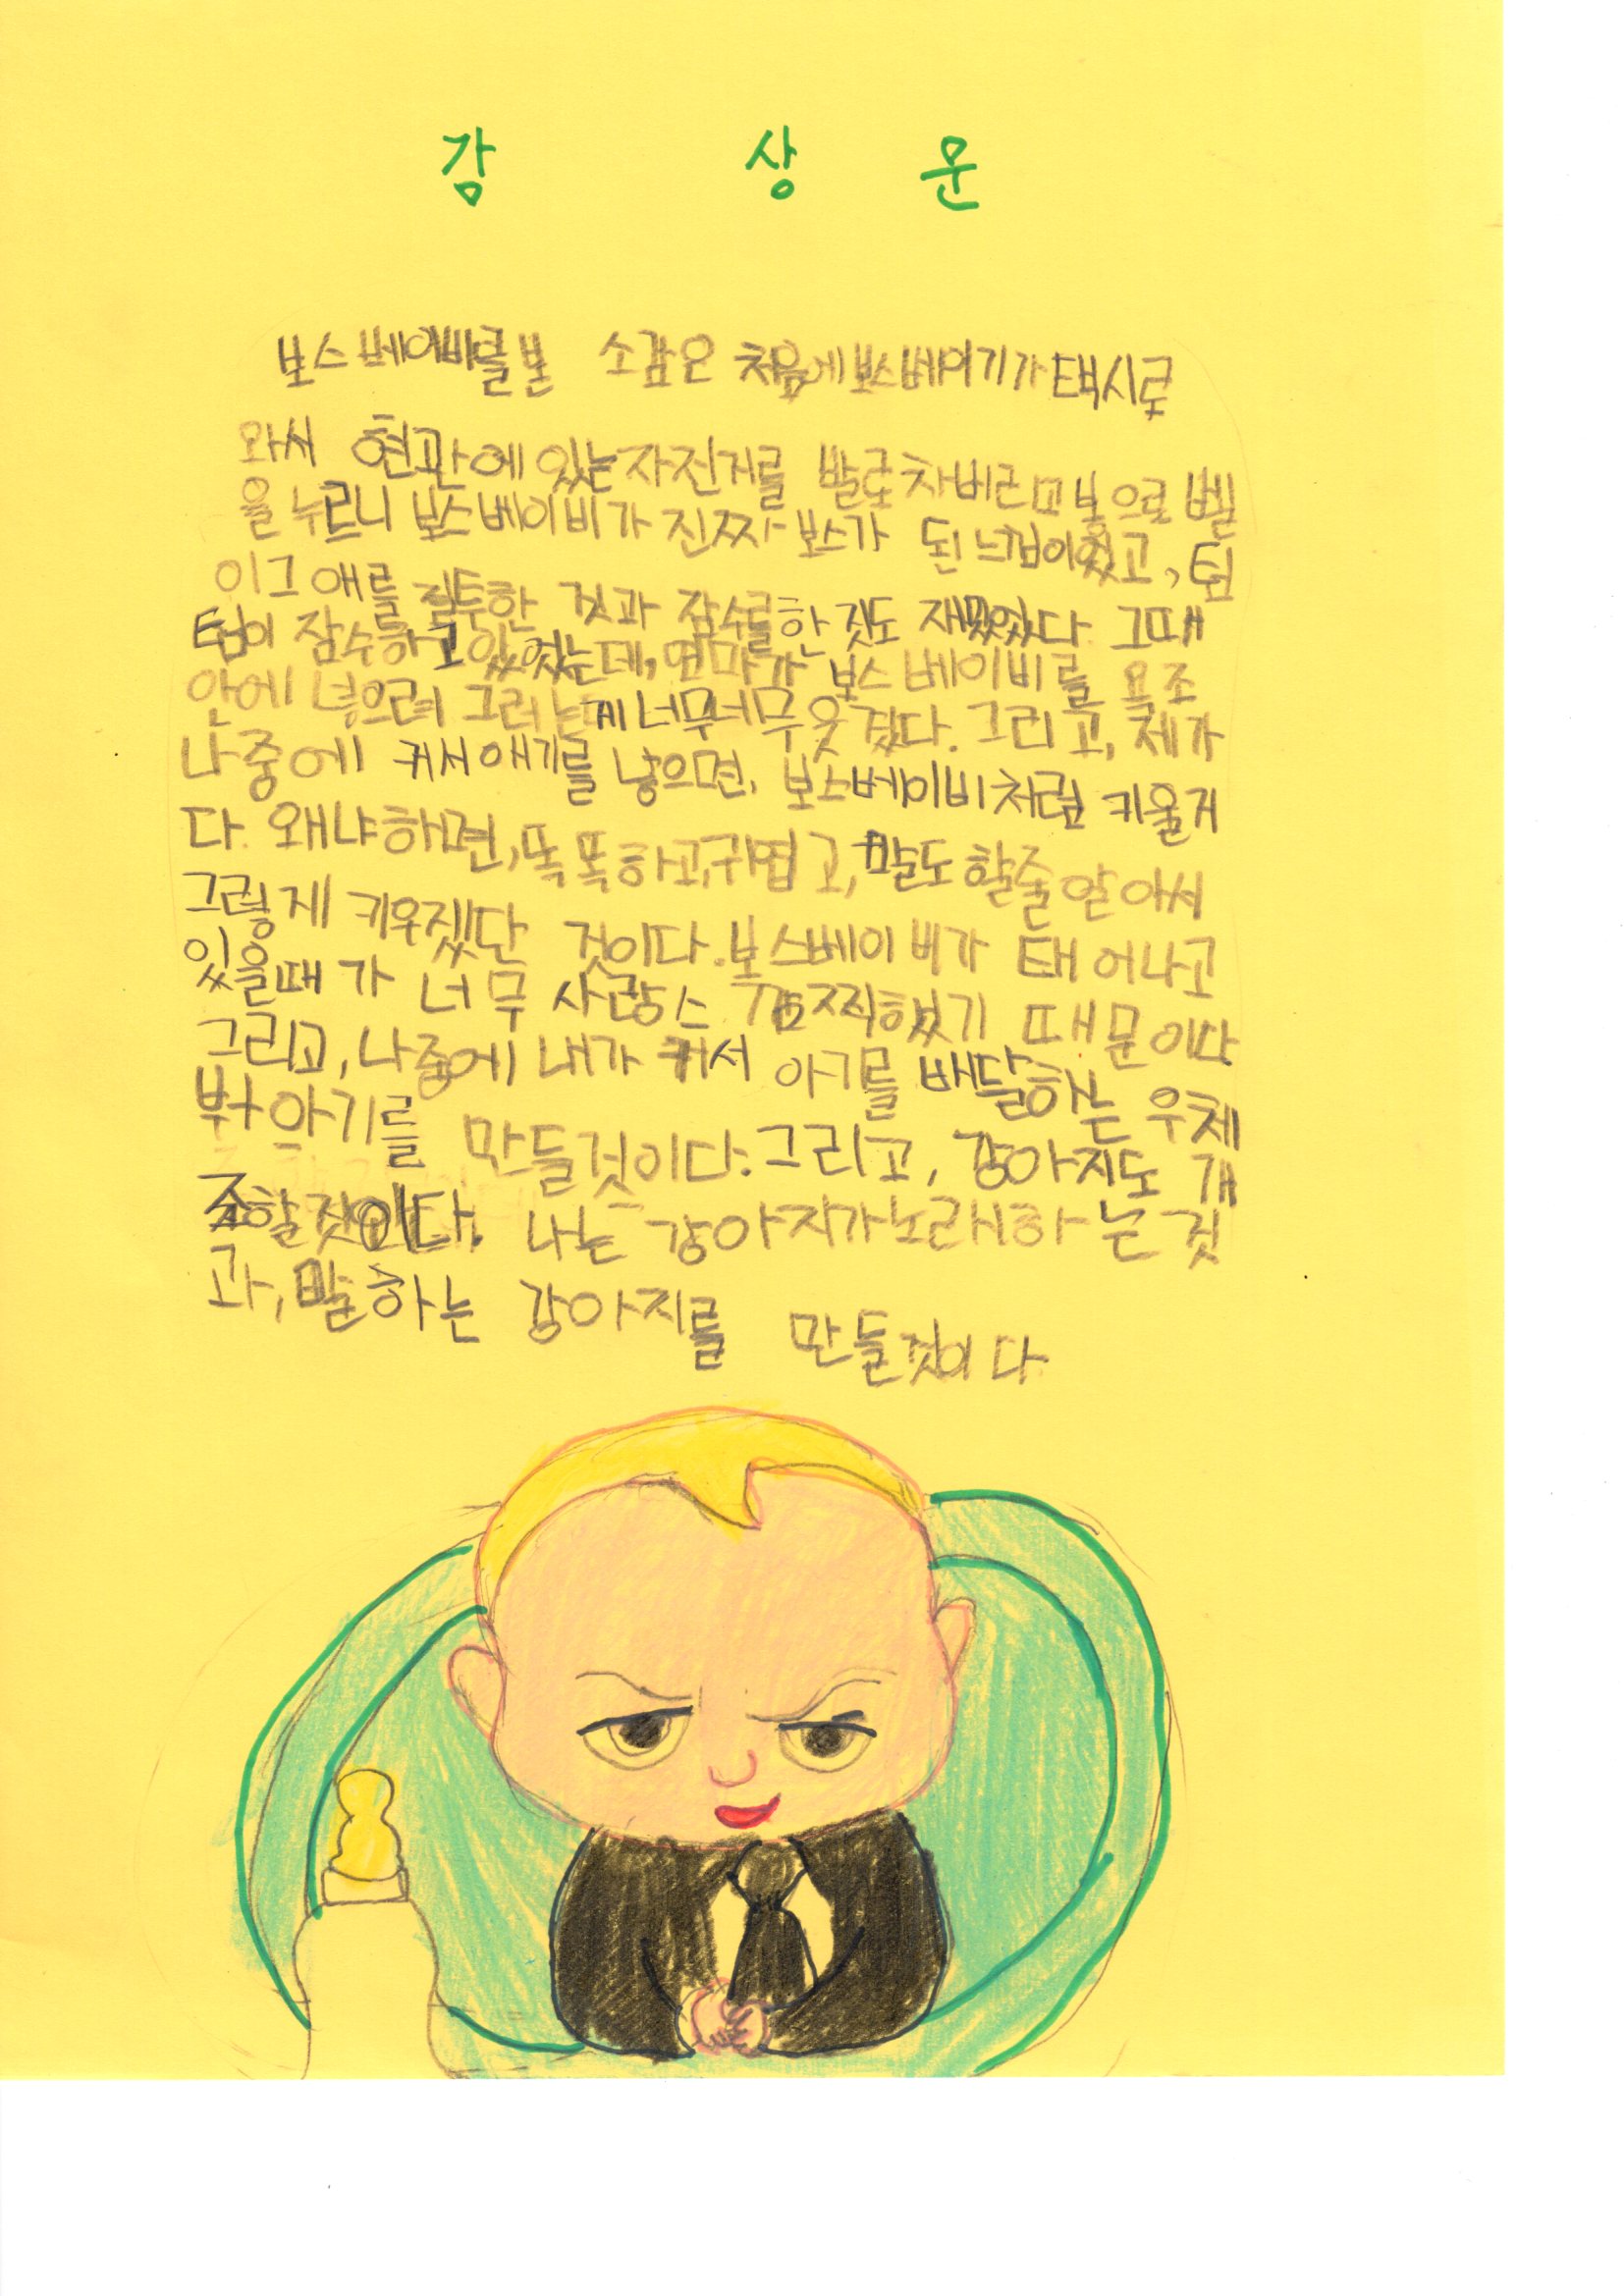 감 상 문
보스베이비를 본 소감은 처음에 보스베이기가 택시로
와서 현관에 있는 자전거를 발로 차버리고 봉으로 벨
을 누르니 보스베이비가 진짜 보스가 된 느낌이였고, 팀
이 그 애를 질투한 것과 잠수를 한 것도 재밌었다. 그때
팀이 잠수하고 있었는데, 엄마가 보스베이비를 욕조
안에 넣으려 그러는게 너무너무 웃겼다. 그리고, 제가
나중에 커서 애기를 낳으면, 보스베이비처럼 키울거
다. 왜냐하면, 똑똑하고, 귀엽고, 말도 할줄 알아서
그렇게 키우겠단 것이다. 보스베이비가 태어나고
있을때가 너무 사랑스 깜찍했기 때문이다
그리고, 나중에 내가 커서 아기를 배달하는 우체
부와 아기를 만들것이다. 그리고, 강아지도 개
조할것이다. 나는 강아지가 노래하는 것
과, 말하는 강아지를 만들것이다